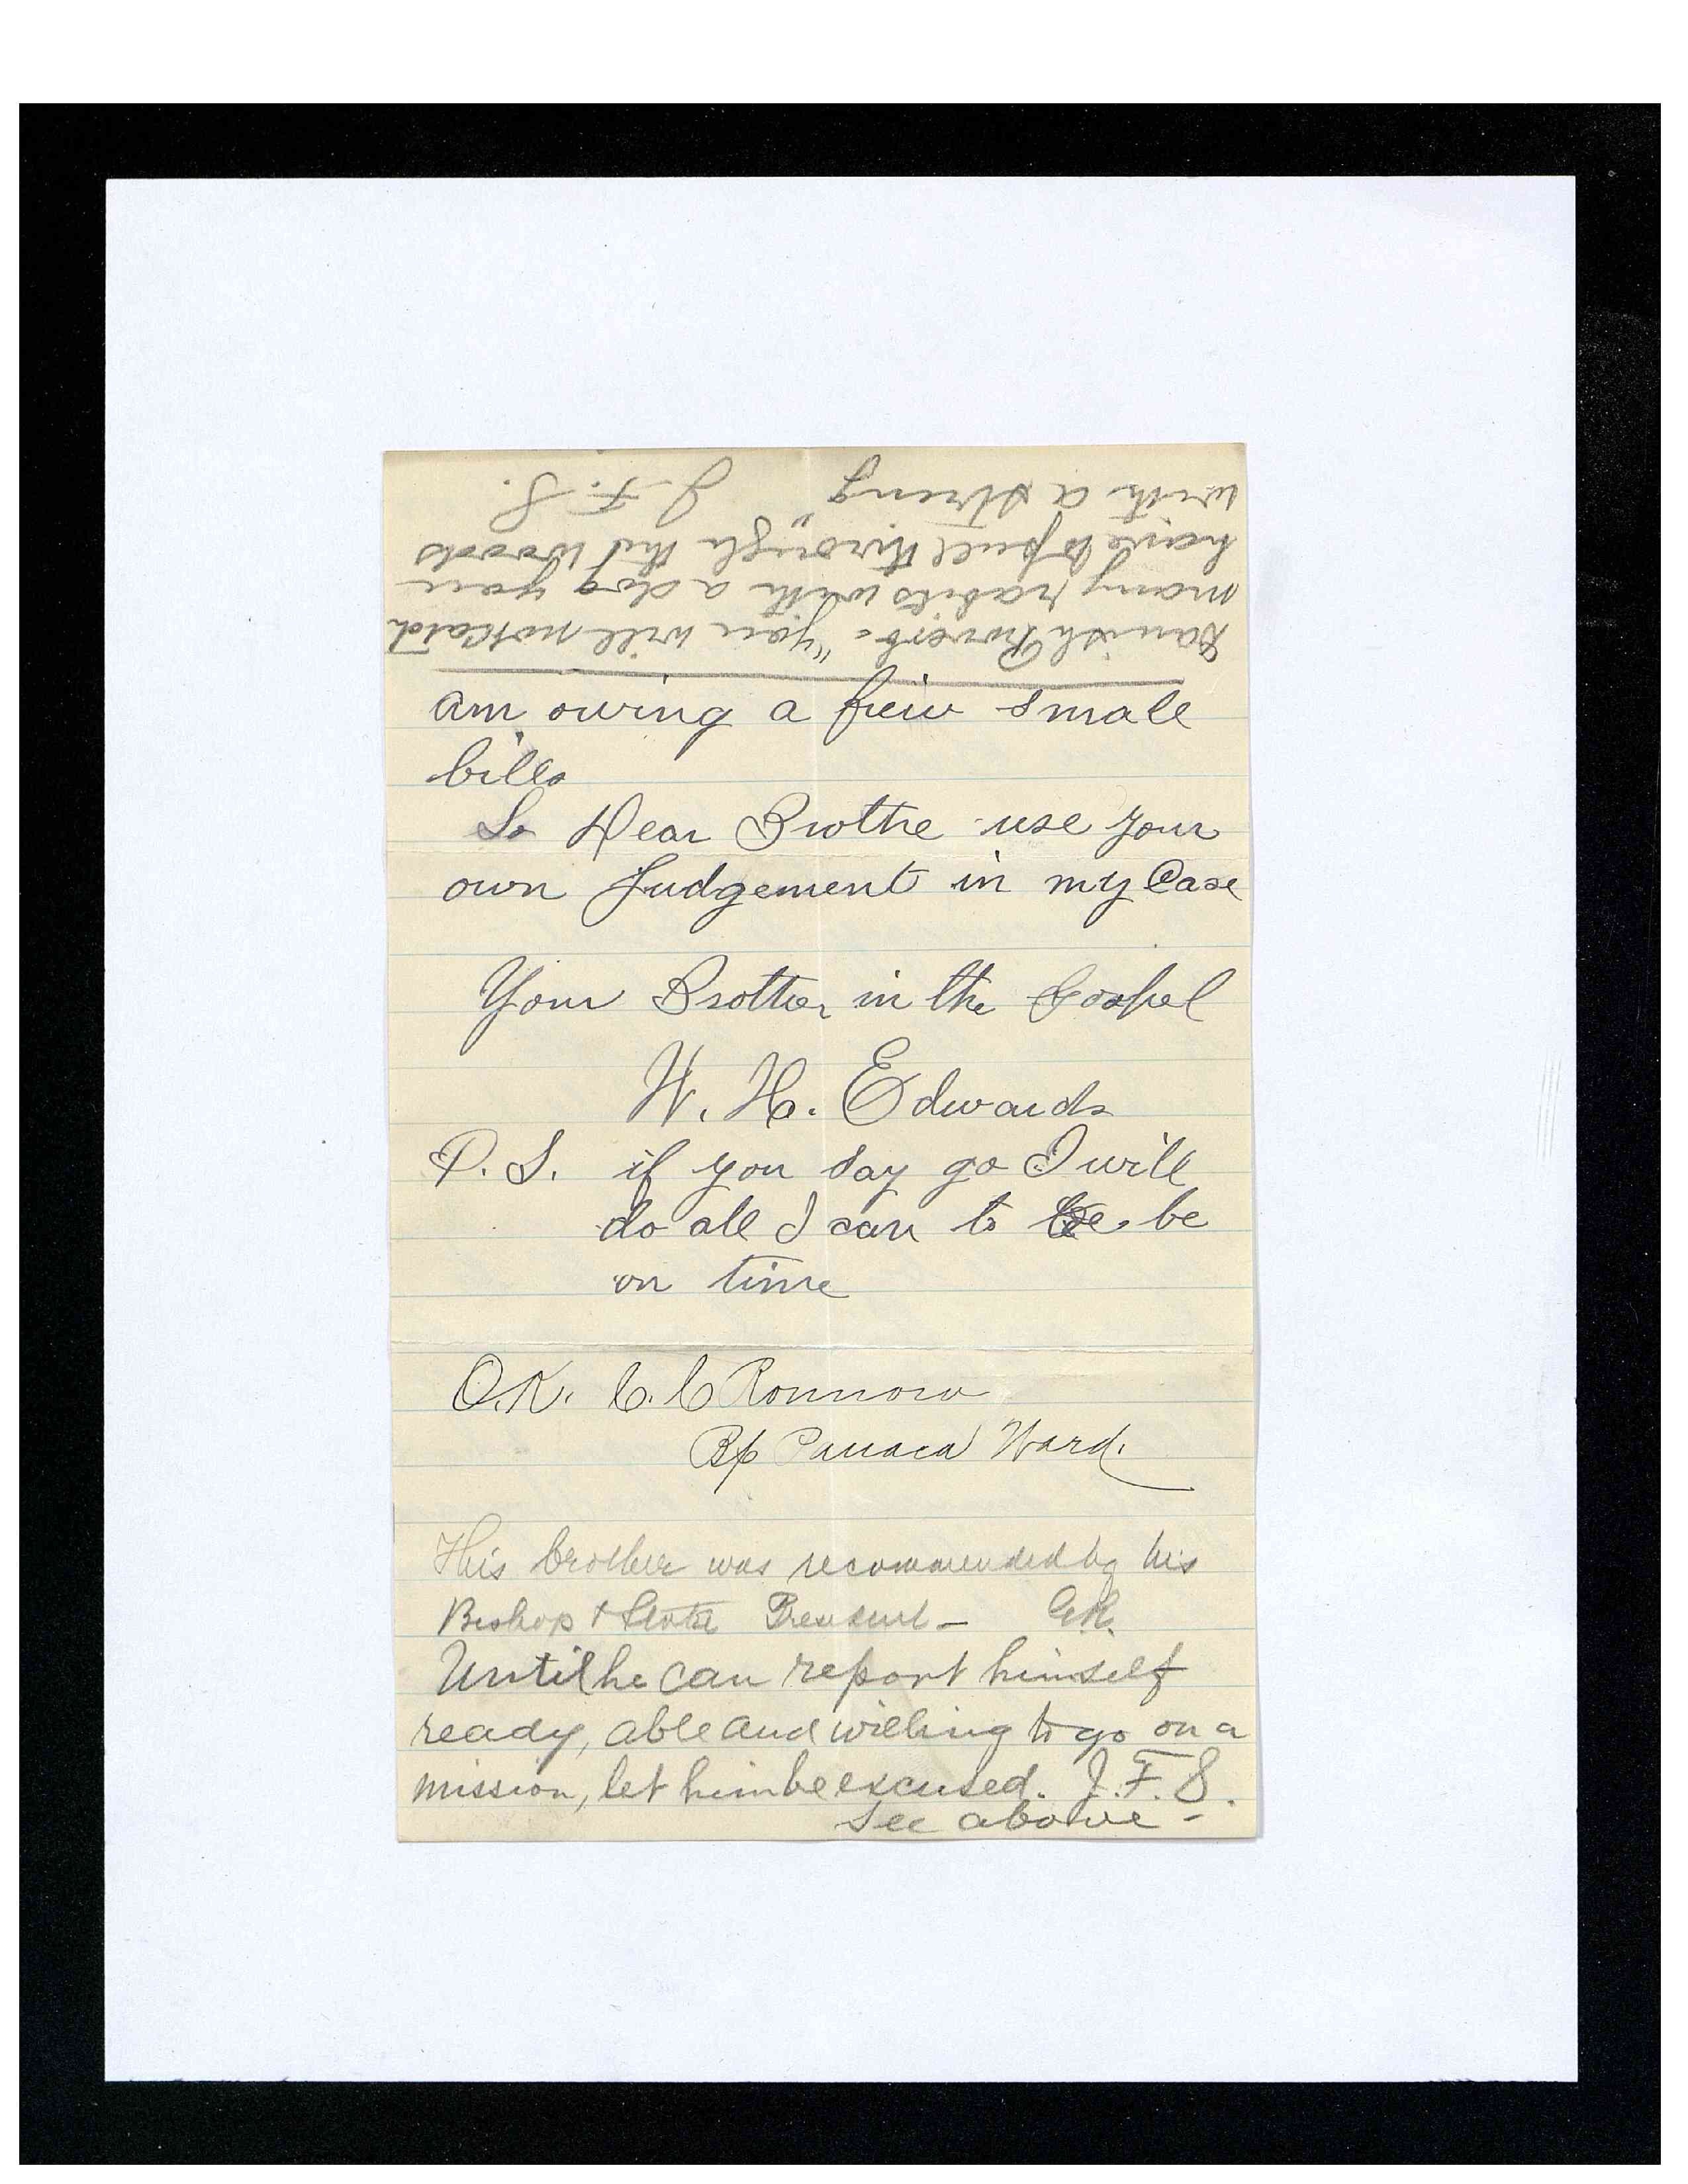 Danish Proverb= "you will not catch
many rabits with a dog you
have to pull through the woods
with a string" J. F. S.
am owing a few small
bills
So Dear Brothe use your
own Judgement in my Case
Your Brother in the Gospel
W. H. Edwards
P.S. if you say go I will
do all I can to be be
on time
O.K. C. C Ronnow
Bp Panaca Ward.
This brother was recommended by his
Bishop & Stake President—
Until he can report himself
ready, able and willing to go on a
mission, let him be excused. J. F. S.
see above -